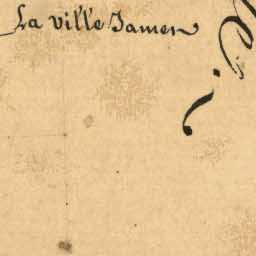 La ville Jamen